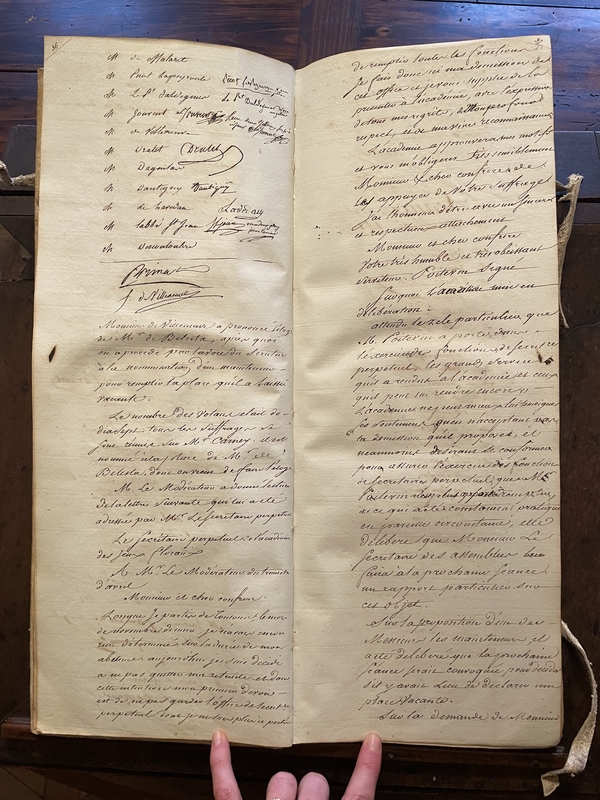 36
M de Malaret
M Pinot Lagayroule
M Le Pt d'aldeguier Le Pt D'aldeguier
M Jouvent
M de Villeneuve
M Dralet Dralet
M Daguilar
M Dantigny Dantigny
M de Lavedan Ladevèze
M l'abbé St Jean
M Descouloubre
Primat
f. de Villeneuve
Monsieur de Villeneuve a prononcé l'éloge
de Mr de Belesta, après quoi
on a procédé par la voie du Scrutin
à la nomination d'un mainteneur
pour remplir la place qu'il a laissé
vacante.
Le nombre des votans etait de
dixsept tous les Suffrages se
sont réunis sur Mr Carney il est
nommé à la place de Mr de
Belesta dont on vient de faire l'éloge
M. Le Modérateur a donné lecture
de la lettre Suivante qui lui a été
adressée par Mr Le Secretaire perpetuel
Le Secretaire perpetuel de l'académie
des Jeux Floraux
A Mr Le Modérateur du trimestre
d'avril
Monsieur et cher confrère
Lorsque je partis de Toulouse, le mois
de novembre dernier je n'avois encore
rien déterminé sur la durée de mon
absence, aujourd'hui je suis décidé
à ne pas quitter ma retraite et dans
cette intention mon premier devoir
est de ne pas garder l'office de secretaire
perpetuel dont je ne serai plus à portée
de remplir toutes les fonctions
Je fais donc ici ma démission de
cet office et je vous supplie de la
presenter à l'académie avec l'expression
de tous mes regrets, de mon profond
respect, et de ma vive reconnaissance
L'academie approuvera mes motifs
et vous m'obligerez très sensiblement
Monsieur & cher confrère de
les appuyer de Votre Suffrage
J'ai l'honneur d'être avec un sincere
et respectueux attachement
Monsieur et cher confrère
Votre très humble et très obeissant
serviteur. Poitevin Signé
Sur quoi la matière mise en
délibération:
attendu le zele particulier que
M. Poitevin a porté dans
l'exercice des fonctions de Secretaire
perpetuel, les grands Services
qu'il a rendus à l'academie et ceux
qu'il peut lui rendre encore
L'academie ne peut mieux lui temoigner
ses sentiments qu'en n'acceptant pas
la demission qu'il propose, et
neanmoins desirant se conformer
pour assurer l'exercice des fonctions
de Secretaire perpetuel que Mr
Poitevin
à ce qui a été constament pratiqué
en pareille circonstance, elle
délibère que Monsieur Le
Secretaire des assemblées
faira à la prochaine séance
un rapport particulier sur
cet objet.
Sur la proposition d'un des
Messieurs les mainteneurs il
a été délibéré que la prochaine
séance serait convoquée pour décider
s'il y avait Lieu de déclarer une
place vacante.
Sur la demande de Monsieur